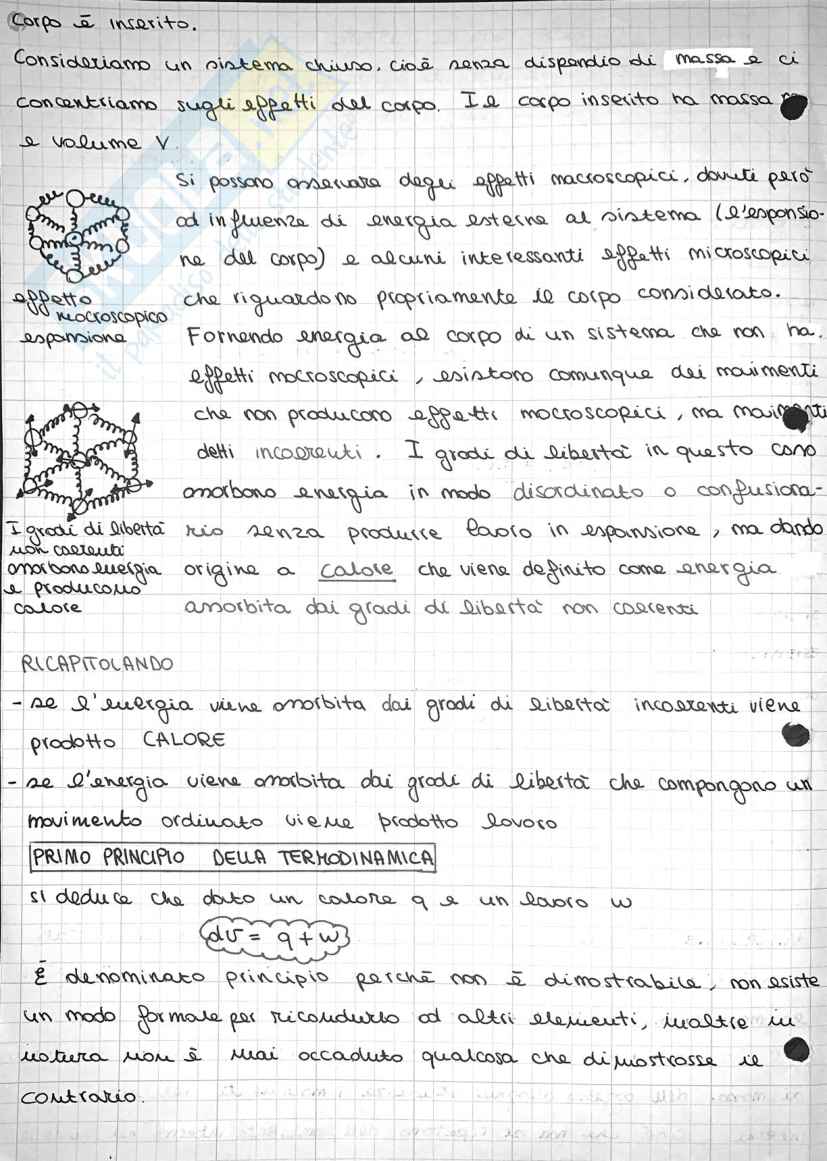 Corpo è inserito.
Consideriamo un sistema chiuso, cioè senza dispendio di massa e ci
concentriamo sugli effetti del corpo. Il corpo inserito ha massa
e volume V.
Si possono osservare degli effetti macroscopici, dovuti però
ad influenze di energia esterne al sistema (l'espansio-
ne del corpo) e alcuni interessanti effetti microscopici
che riguardono propriamente il corpo considerato.
effetto
macroscopico
espansione
Fornendo energia al corpo di un sistema che non ha
effetti macroscopici, esistono comunque dei movimenti
che non producono effetti macroscopici, ma movimenti
detti incoerenti. I gradi di libertà in questo caso
assorbono energia in modo disordinato o confusiona-
rio senza produrre lavoro in espansione, ma dando
origine a calore che viene definito come energia
assorbita dai gradi di libertà non coerenti
I gradi di libertà
non coerenti
assorbono energia
e producono
calore
RICAPITOLANDO
- se l'energia viene assorbita dai gradi di libertà incoerenti viene
prodotto CALORE
- se l'energia viene assorbita dai gradi di libertà che compongono un
movimento ordinato viene prodotto lavoro
PRIMO PRINCIPIO DELLA TERMODINAMICA
si deduce che dato un calore q e un lavoro w
dU = q + w
È denominato principio perché non è dimostrabile, non esiste
un modo formale per ricondurlo ad altri elementi, inoltre in
natura non è mai accaduto qualcosa che dimostrasse il
contrario.